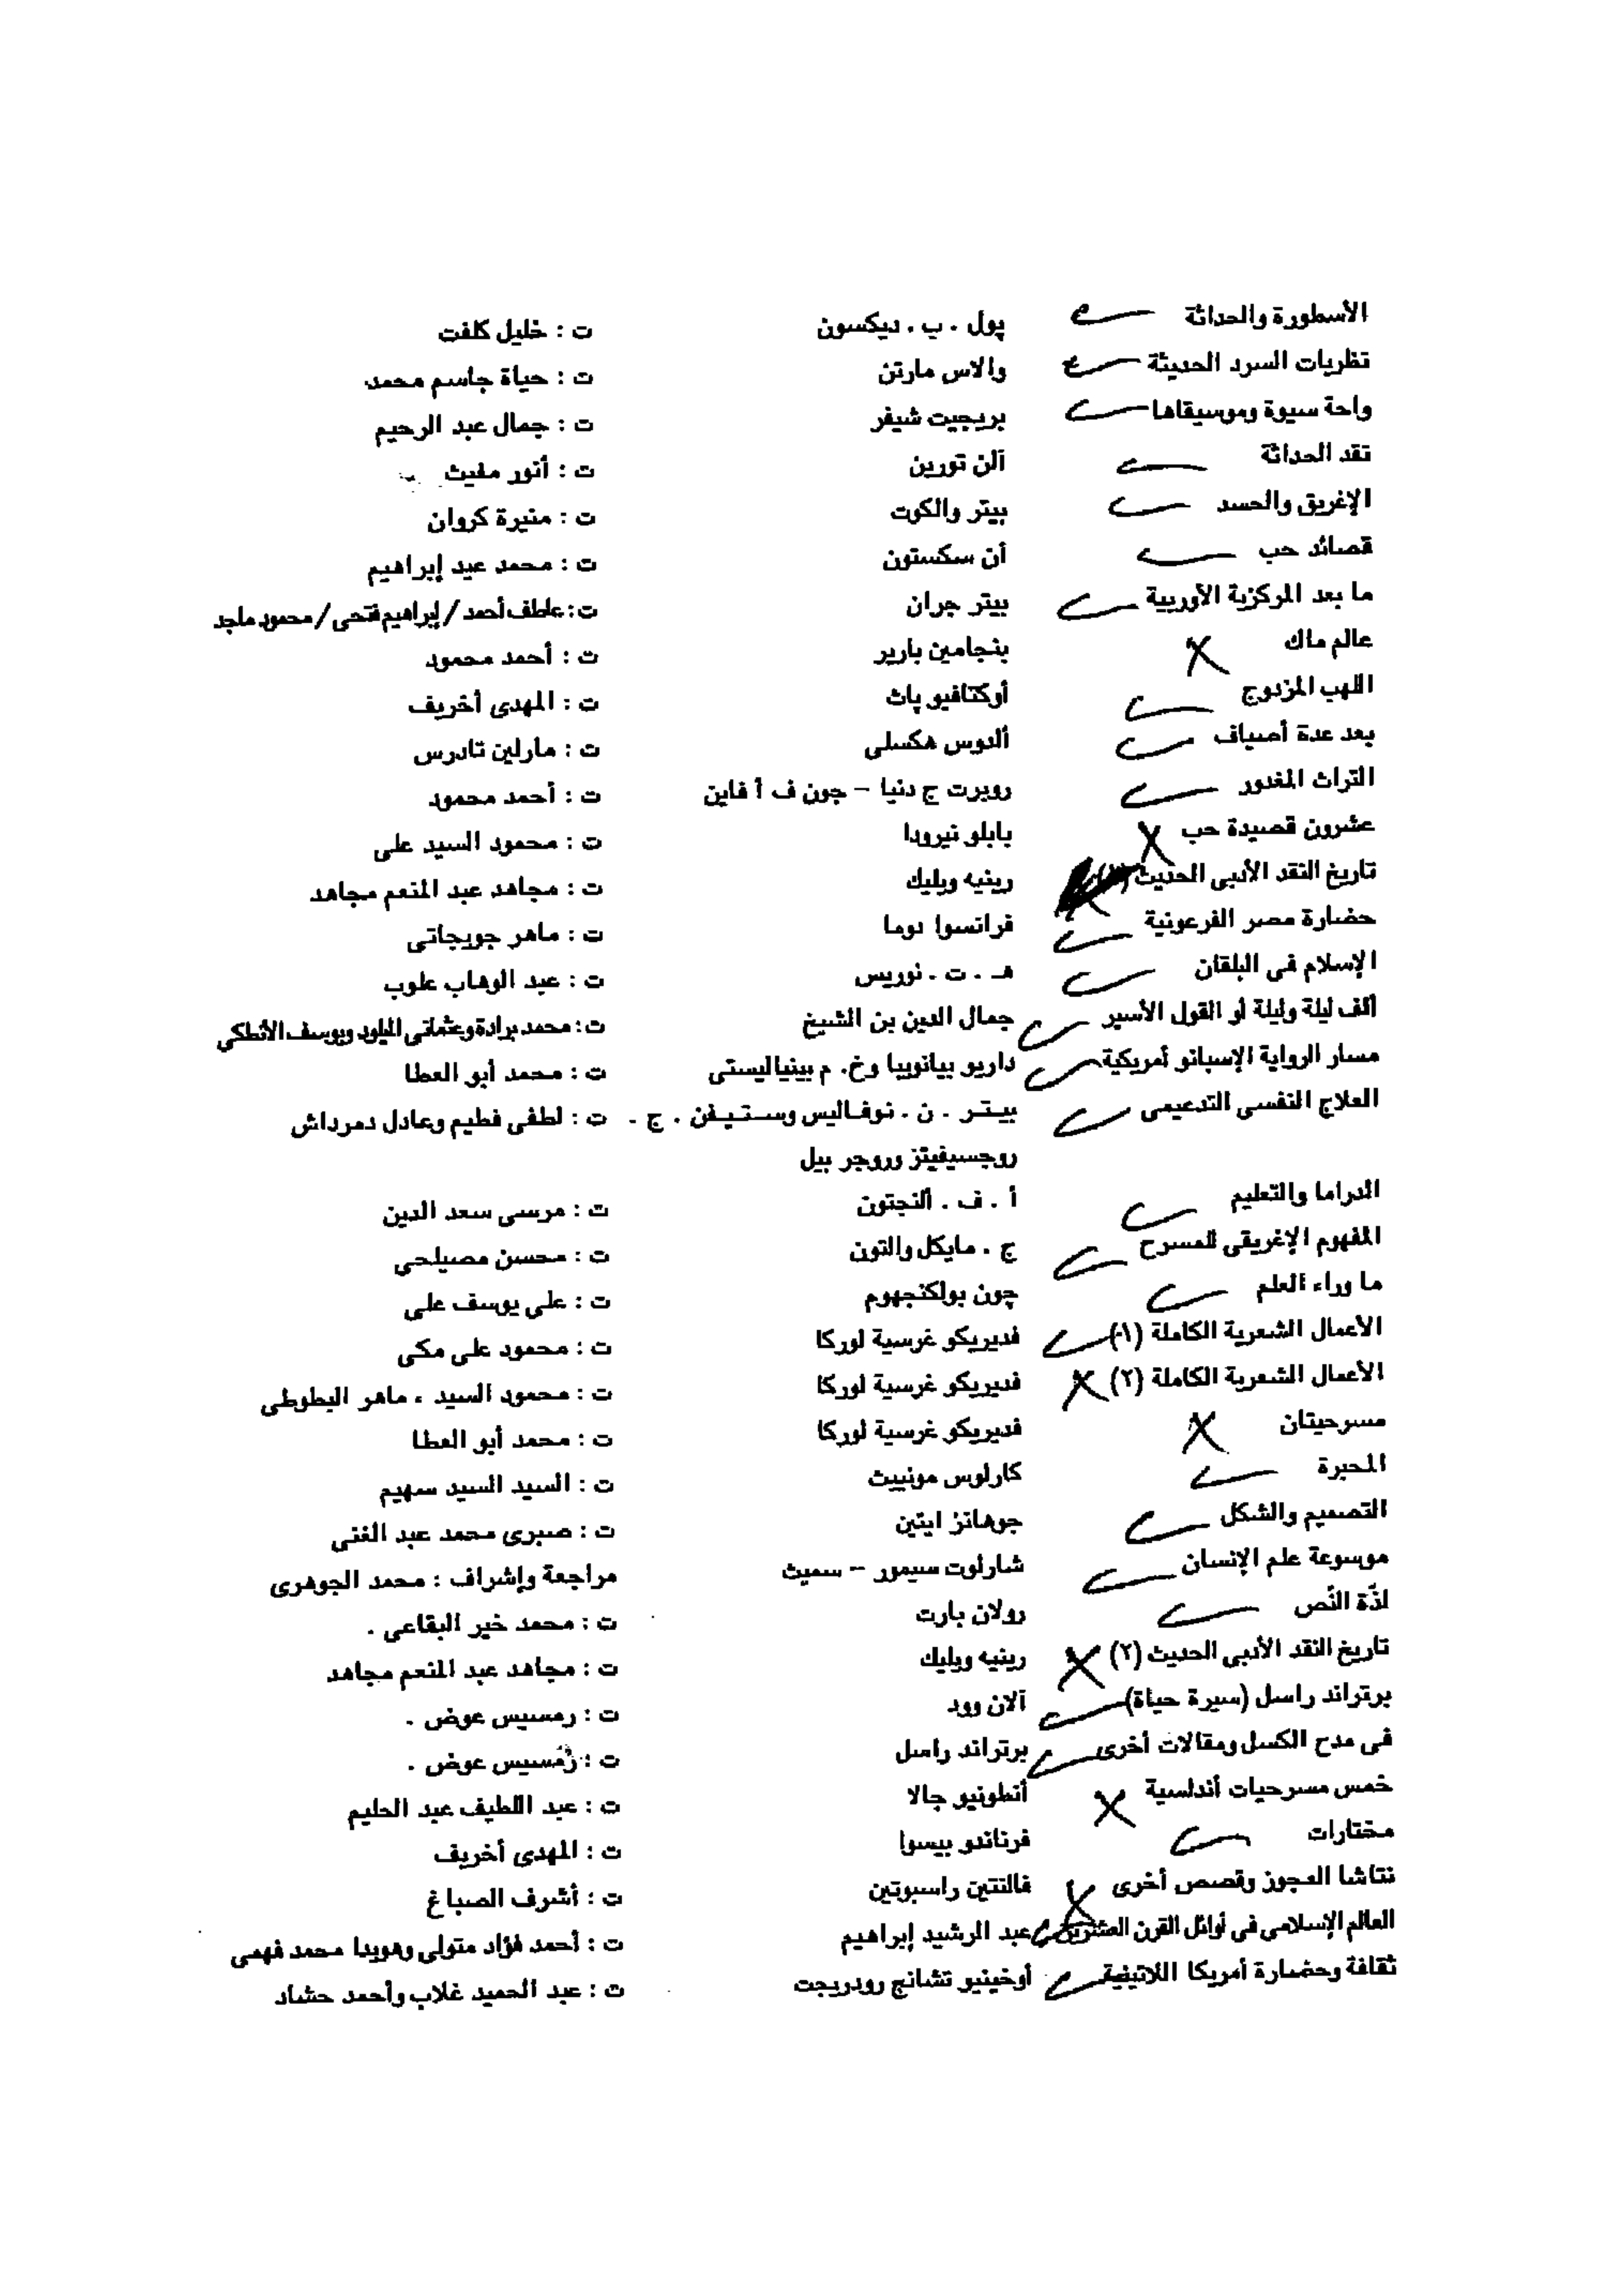 الأسطورة والحداثة پول . ب . ديكسون ت : خليل كلفت
نظريات السرد الحديثة والاس مارتن ت : حياة جاسم محمد
واحة سيوة وموسيقاها بريجيت شيفر ت : جمال عبد الرحيم
نقد الحداثة آلن تورين ت : أنور مغيث
الإغريق والحسد بيتر والكوت ت : منيرة كروان
قصائد حب آن سكستون ت : محمد عيد إبراهيم
ما بعد المركزية الأوربية بيتر جران ت : عاطف أحمد / إبراهيم فتحى / محمود ماجد
عالم ماك بنجامين باربر ت : أحمد محمود
اللهب المزدوج أوكتافيو پاث ت : المهدى أخريف
بعد عدة أصياف ألدوس هكسلى ت : مارلين تادرس
التراث المغدور روبرت ج دنيا - جون ف أ فاين ت : أحمد محمود
عشرون قصيدة حب بابلو نيرودا ت : محمود السيد على
تاريخ النقد الأدبى الحديث (١) رينيه ويليك ت : مجاهد عبد المنعم مجاهد
حضارة مصر الفرعونية فرانسوا دوما ت : ماهر جويجاتى
الإسلام فى البلقان هـ . ت . نوريس ت : عبد الوهاب علوب
ألف ليلة وليلة أو القول الأسير جمال الدين بن الشيخ ت : محمد برادة وعثمانى الميلود ويوسف الأنطكى
مسار الرواية الإسبانو أمريكية داريو بيانويبا وخ. م بينياليستى ت : محمد أبو العطا
العلاج النفسى التدعيمى بيتر . ن . نوفاليس وستيفن . ج . ت : لطفى فطيم وعادل دمرداش
روجسيفيتز وروجر بيل
الدراما والتعليم أ . ف . ألنجتون ت : مرسى سعد الدين
المفهوم الإغريقى للمسرح ج . مايكل والتون ت : محسن مصيلحى
ما وراء العلم چون بولكنجهوم ت : على يوسف على
الأعمال الشعرية الكاملة (١) فديريكو غرسية لوركا ت : محمود على مكى
الأعمال الشعرية الكاملة (٢) فديريكو غرسية لوركا ت : محمود السيد ، ماهر البطوطى
مسرحيتان فديريكو غرسية لوركا ت : محمد أبو العطا
المحبرة كارلوس مونييث ت : السيد السيد سهيم
التصميم والشكل جوهانز ايتين ت : صبرى محمد عبد الغنى
موسوعة علم الإنسان شارلوت سيمور - سميث مراجعة وإشراف : محمد الجوهرى
لذّة النّص رولان بارت ت : محمد خير البقاعى .
تاريخ النقد الأدبى الحديث (٢) رينيه ويليك ت : مجاهد عبد المنعم مجاهد
برتراند راسل (سيرة حياة) آلان وود ت : رمسيس عوض .
فى مدح الكسل ومقالات أخرى برتراند راسل ت : رمسيس عوض .
خمس مسرحيات أندلسية أنطونيو جالا ت : عبد اللطيف عبد الحليم
مختارات فرناندو بيسوا ت : المهدى أخريف
نتاشا العجوز وقصص أخرى فالنتين راسبوتين ت : أشرف الصباغ
العالم الإسلامى فى أوائل القرن العشرين عبد الرشيد إبراهيم ت : أحمد فؤاد متولى وهويدا محمد فهمى
ثقافة وحضارة أمريكا اللاتينية أوخينيو تشانج رودريجت ت : عبد الحميد غلاب وأحمد حشاد